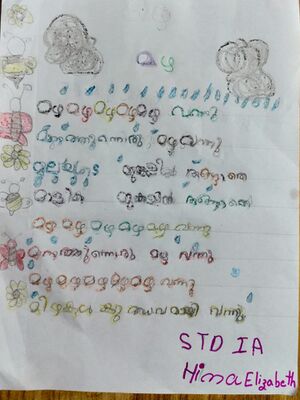 മഴ
മഴ മഴ മഴ മഴ മഴ വന്നു
മാനത്തുന്നൊരു മഴ വന്നു
മുകളിൽ തങ്ങാതെ
മാളിക മുകളിൽ തങ്ങാതെ
മഴ മഴ മഴ മഴ മഴ വന്നു
മാനത്തുന്നൊരു മഴ വന്നു
മഴ മഴ മഴ മഴ മഴ വന്നു
വന്നു
STD IA
Elizabeth